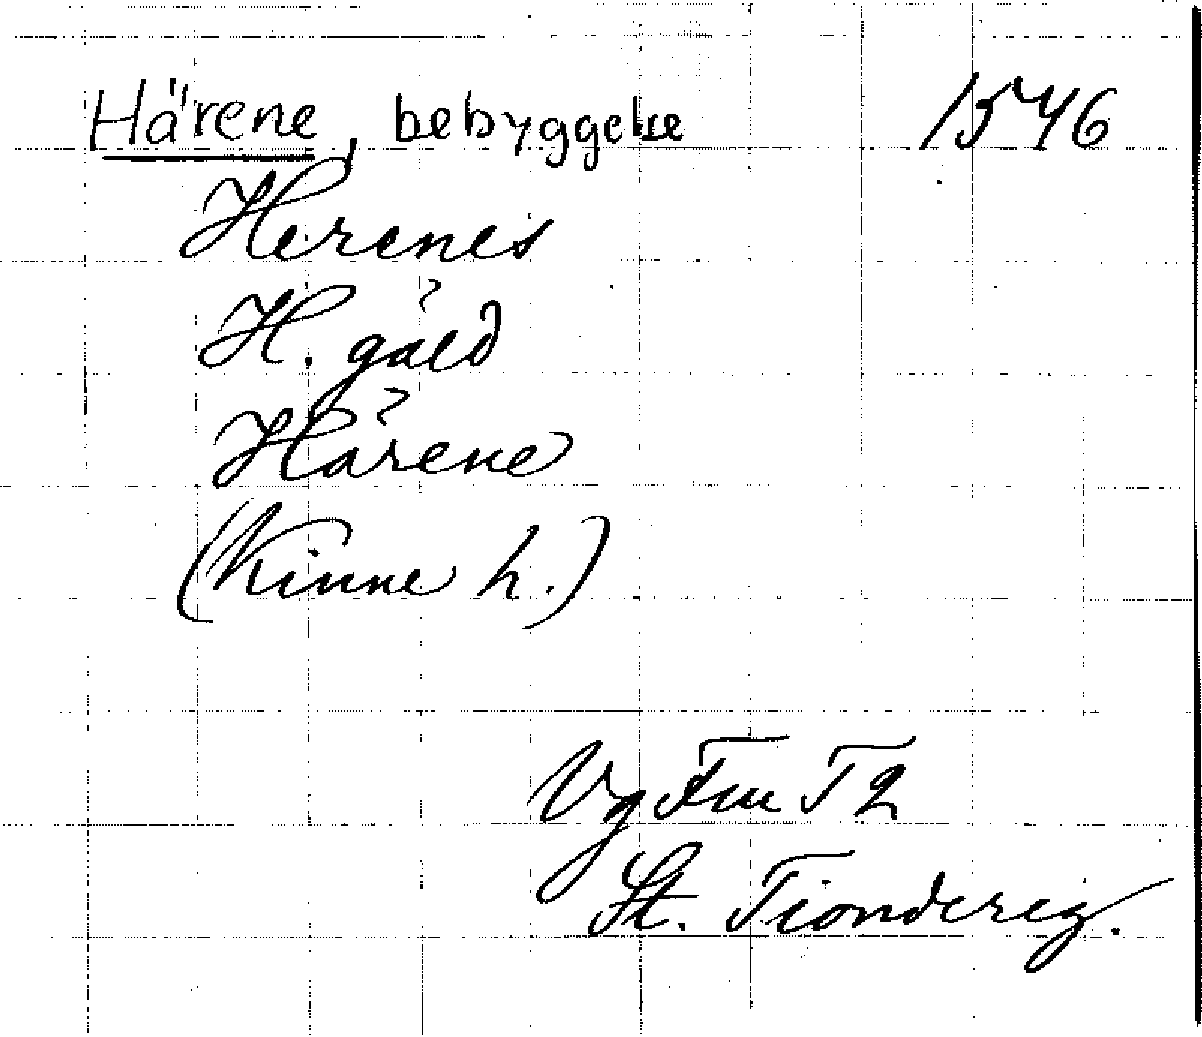 Härene, bebyggelse 1546
Herenes
H. gäld
Härene
(Kinne h.)
Vg Fm T 2
St. Tiondereg.